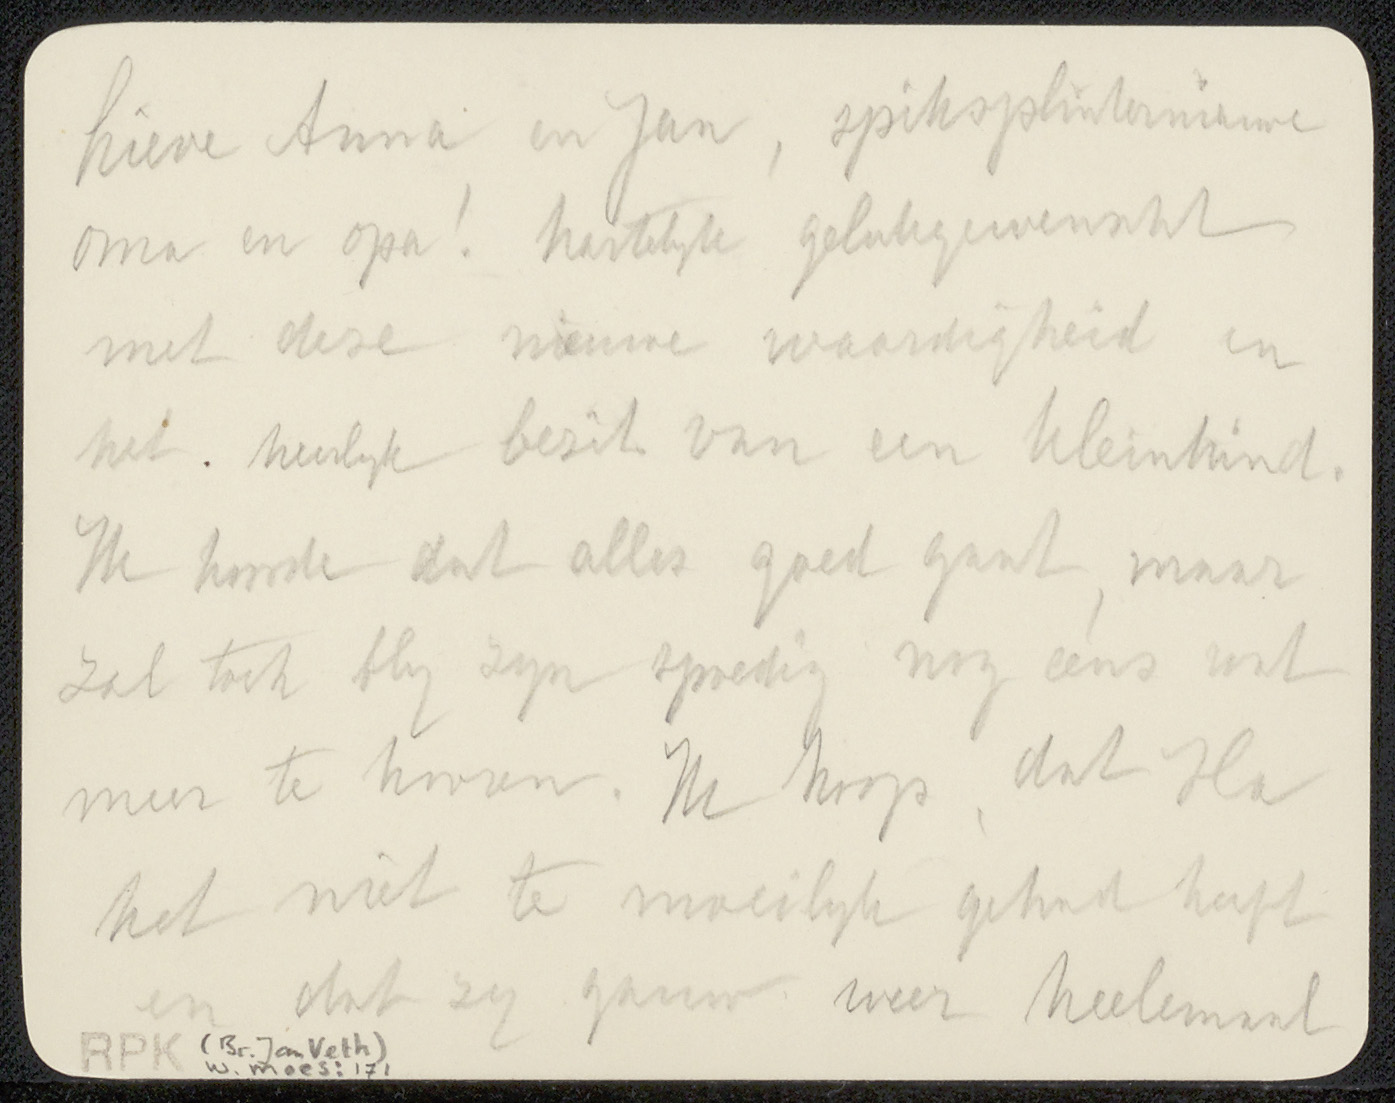 Lieve Anna en Jan, spiksplinternieuwe
oma en opa! hartelyk gelukgewenscht
met deze nieuwe waardigheid en
het heerlyk bezit van een kleinkind.
Ik hoorde dat alles goed gaat, maar
zal toch bly zyn spoedig nog eens wat
meer te hooren. Ik hoop, dat Ila
het niet te moeilyk gehad heeft
en dat zy gauw weer heelemaal
RPK (Br. Jan Veth)
W. Moes: 171